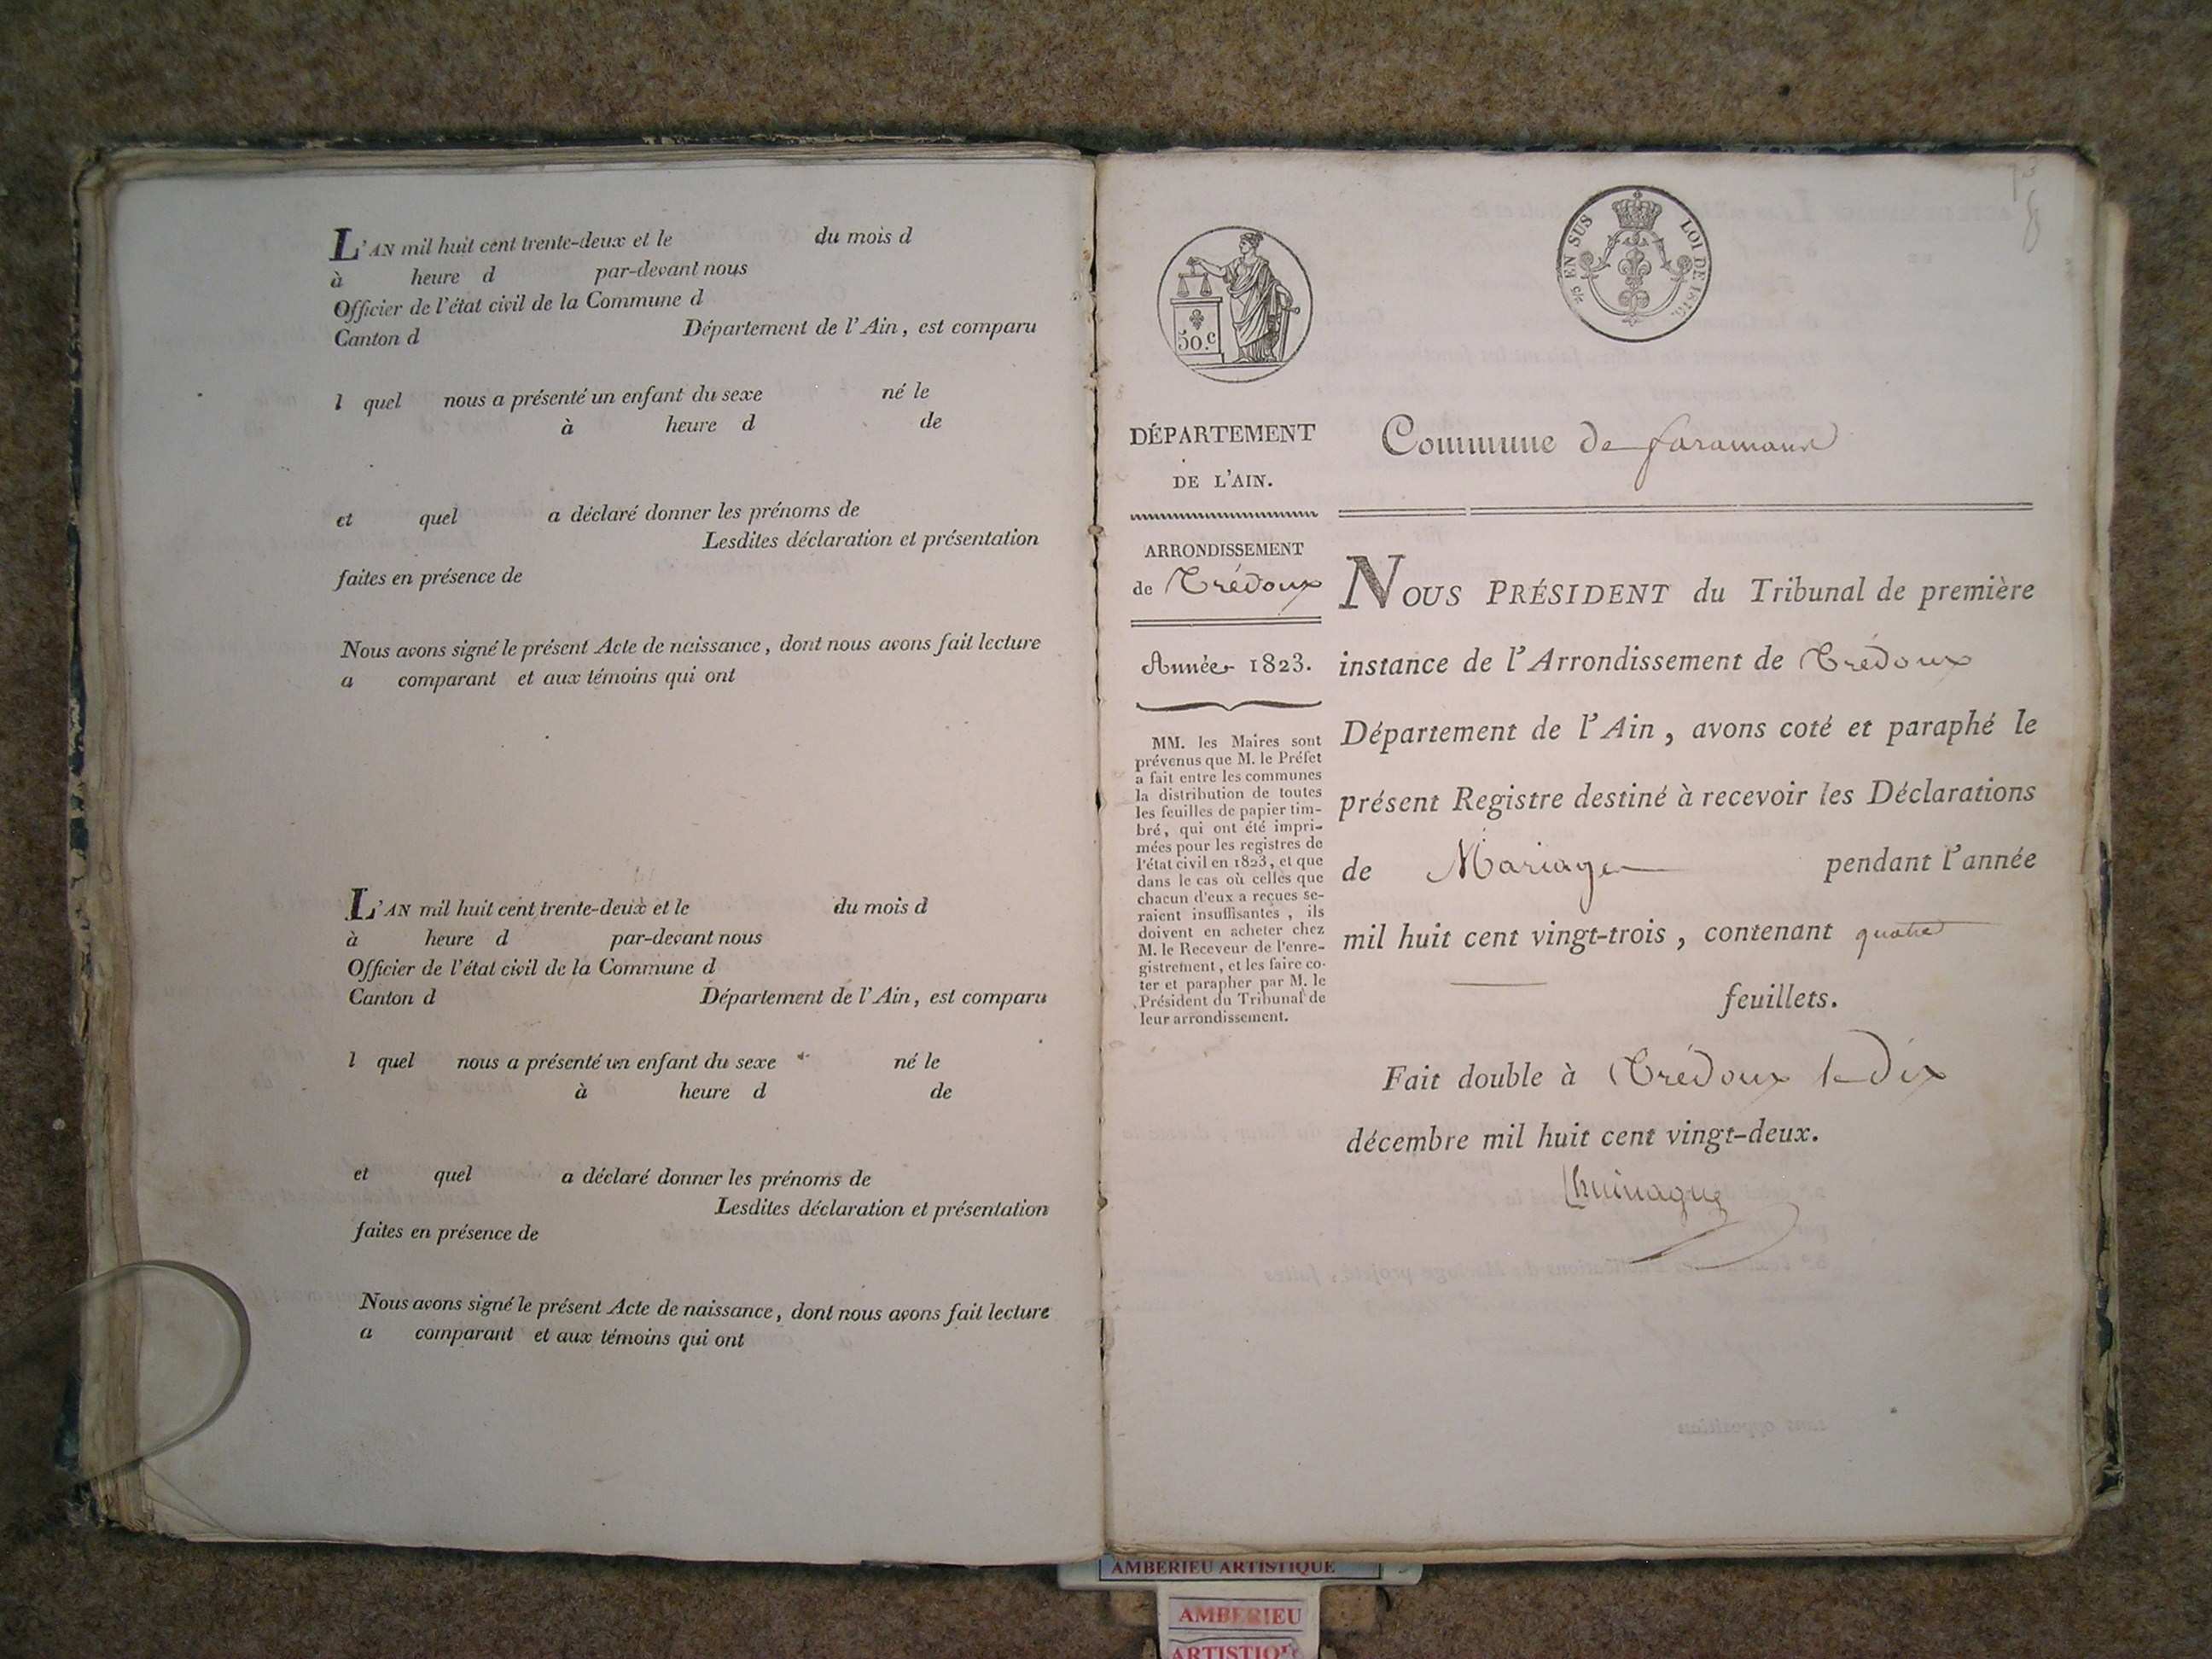 L'AN mil huit cent trente-deux et le du mois d
à heure d par-devant nous
Officier de l'état civil de la Commune d
Canton d Département de l'Ain, est comparu
l quel nous a présenté un enfant du sexe né le
à heure d de
et quel a déclaré donner les prénoms de
Lesdites déclaration et présentation
faites en présence de
Nous avons signé le présent Acte de naissance, dont nous avons fait lecture
a comparant et aux témoins qui ont
L'AN mil huit cent trente-deux et le du mois d
à heure d par-devant nous
Officier de l'état civil de la Commune d
Canton d Département de l'Ain, est comparu
l quel nous a présenté un enfant du sexe né le
à heure d de
et quel a déclaré donner les prénoms de
Lesdites déclaration et présentation
faites en présence de
Nous avons signé le présent Acte de naissance, dont nous avons fait lecture
a comparant et aux témoins qui ont
50.c
EN SUS LOI DE 1816.
DÉPARTEMENT
DE L'AIN.
ARRONDISSEMENT
de Trédoux
Année 1823.
MM. les Maires sont
prévenus que M. le Préfet
a fait entre les communes
la distribution de toutes
les feuilles de papier tim-
bré, qui ont été impri-
mées pour les registres de
l'état civil en 1823, et que
dans le cas où celles que
chacun d'eux a reçues se-
raient insuffisantes, ils
doivent en acheter chez
M. le Receveur de l'enre-
gistrement, et les faire co-
ter et parapher par M. le
Président du Tribunal de
leur arrondissement.
Commune de faramand
NOUS PRÉSIDENT du Tribunal de première
instance de l'Arrondissement de Trédoux
Département de l'Ain, avons coté et paraphé le
présent Registre destiné à recevoir les Déclarations
de Mariage pendant l'année
mil huit cent vingt-trois, contenant quatre
feuillets.
Fait double à Trédoux le dix
décembre mil huit cent vingt-deux.
AMBERIEU ARTISTIQUE
AMBERIEU
ARTISTIQUE